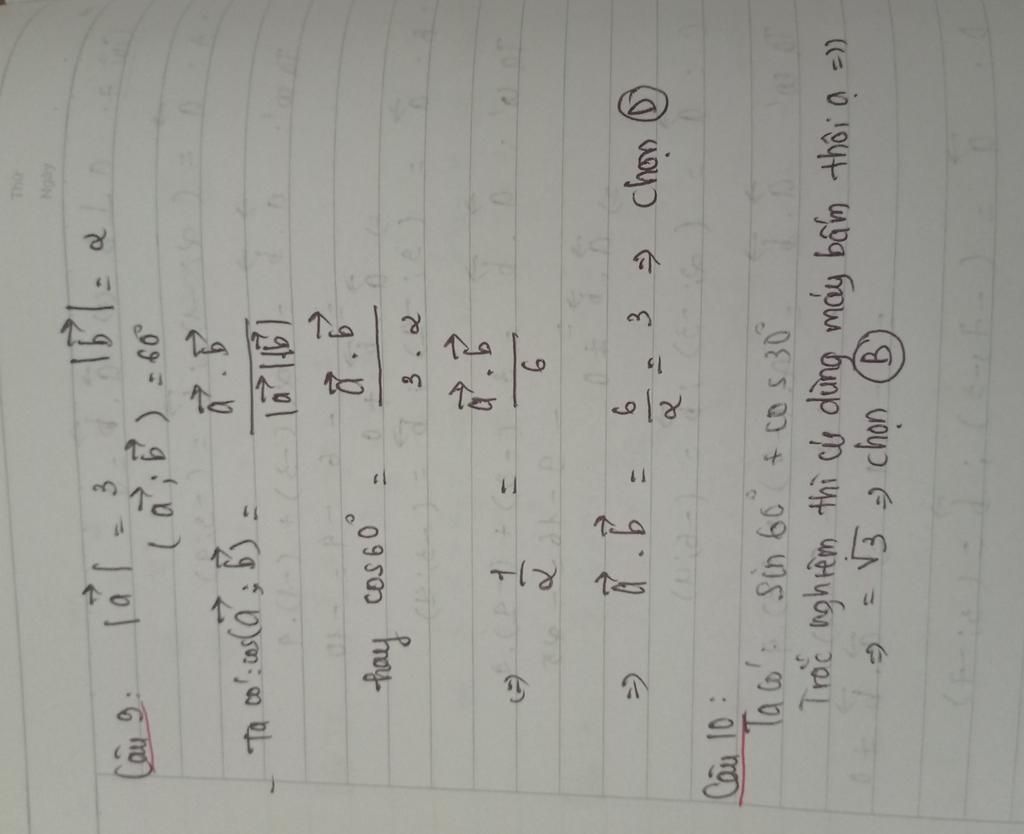 Thứ
Ngày
Câu 9: |a⃗| = 3 |b⃗| = 2
(a⃗; b⃗) = 60°
- Ta có: cos(a⃗; b⃗) = a⃗ . b⃗ / |a⃗|.|b⃗|
hay cos60° = a⃗ . b⃗ / 3 . 2
(=) 1/2 = a⃗ . b⃗ / 6
=> a⃗ . b⃗ = 6/2 = 3 => chọn D
Câu 10:
Ta có: Sin 60° + cos 30°
Trắc nghiệm thì cứ dùng máy bấm thôi ạ =))
=> = √3 => chọn B